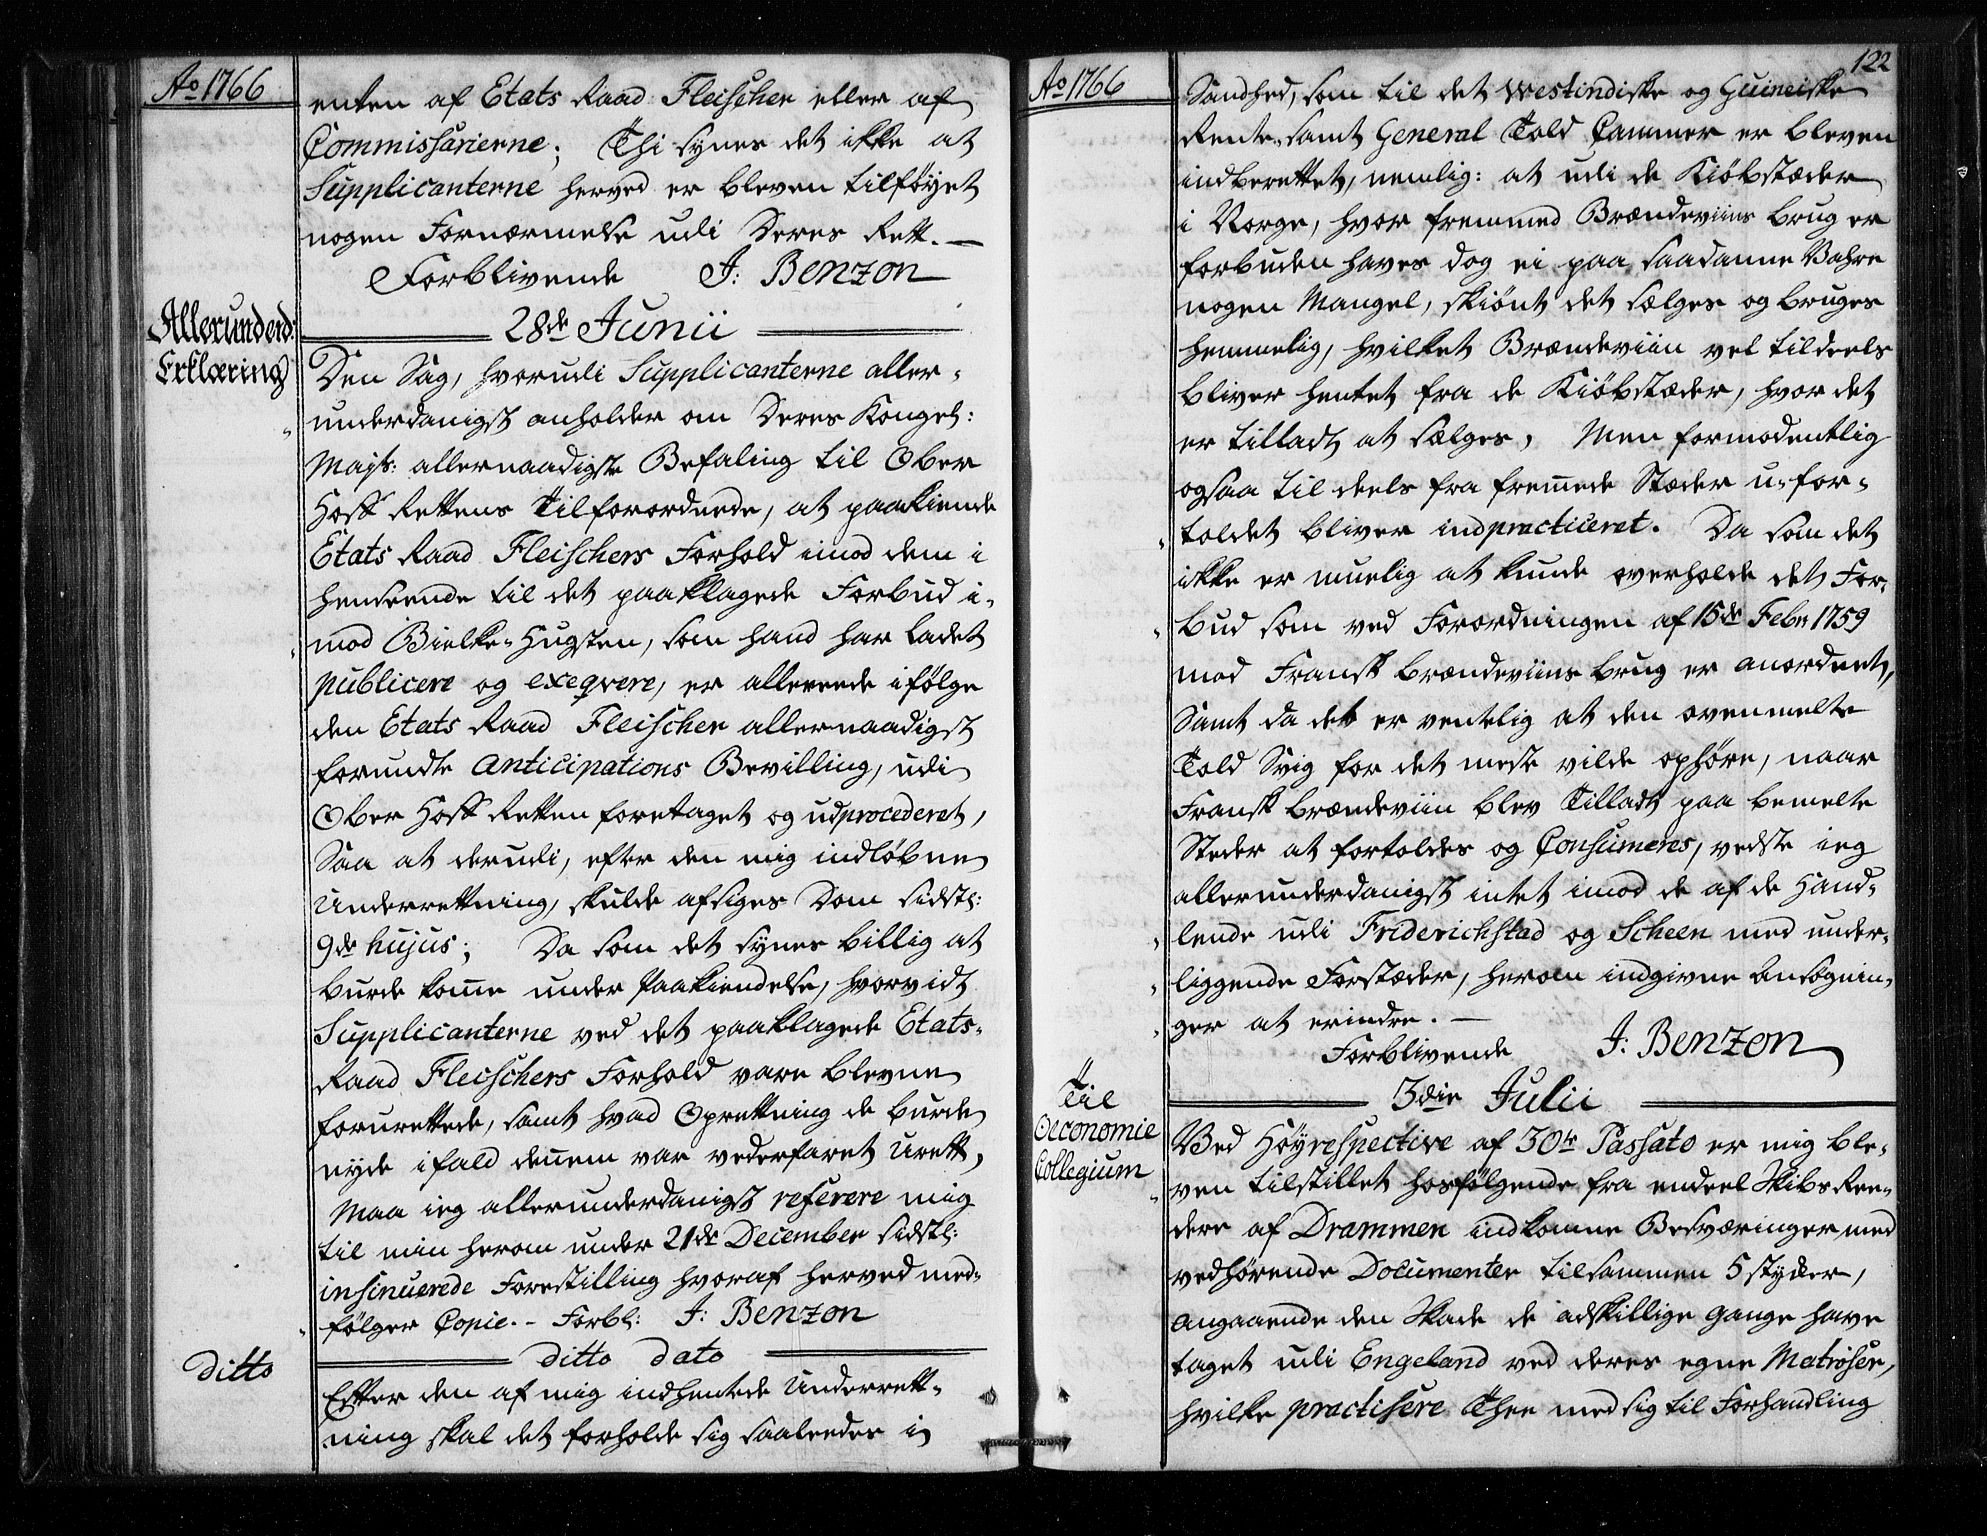 Ao 1766
enten af Etats Raad Fleischer eller af
Commissarierne; Thi synes det ikke at
Supplicanterne herved er bleven tilføyet
nogen Fornærmelse udi Deres Rett. —
Forblivende J: Benzon
28de Junii
Allerunderd:
Erklæring
Den Sag, hvorudi Supplicanterne aller-
underdanigst anholder om Deres Kongel:
Majts: allernaadigste Befaling til Ober
Hoff Rettens Tilforordnede, at paakiende
Etats Raad Fleischers Forhold imod dem i
henseende til det paaklagede Forbud i-
mod Bielke-Hugsten, som hand har ladet
publicere og exeqvere, er allereede ifølge
den Etats Raad Fleischer allernaadigst
forundte Anticipations Bevilling, udi
Ober Hoff Retten foretaget og udprocederet,
Saa at derudi, efter den mig indløbne
Underretning, skulde afsiges Dom sidstl:
9de hujus; Da som det synes billig at
burde komme under Paakiendelse, hvorvidt
Supplicanterne ved det paaklagede Etats-
Raad Fleischers Forhold vare blevne
forurettede, samt hvad Oprettning de burde
nyde ifald dennem var vederfaret Urett,
Maa ieg allerunderdanigst referere mig
til min herom under 21de December sidstl:
insinuerede Forestilling hvoraf herved med-
følger Copie. - Forbl: J: Benzon
ditto dato
Ditto
Efter den af mig indhentede Underrett-
ning skal det forholde sig saaleedes i
122
Ao 1766
Sandhed, som til det Westindiske og Guineiske
Rente- samt General Told Cammer er bleven
indberettet, nemlig: at udi de Kiøbstæder
i Norge, hvor fremmed Brændeviins brug er
forbuden haves dog ei paa saadanne Vahre
nogen Mangel, skiønt det sælges og bruges
hemmelig, hvilket Brændeviin vel tildeels
bliver hentet fra de Kiøbstæder, hvor det
er tilladt at sælges, Men formodentlig
ogsaa til deels fra fremede Stæder u-for-
toldet bliver indpracticeret. Da som det
ikke er muelig at kunde overholde det For-
bud som ved Forordningen af 15de Febr 1759
mod Fransk brændeviins brug er anordnet,
Samt da det er ventelig at den ovenmelte
Told Svig for det meste vilde ophøre, naar
Fransk brændeviin blev Tilladt paa bemelte
Steder at fortoldes og Consumeres, vedste ieg
allerunderdanigst intet imod de af de Hand-
lende udi Friderichstad og Scheen med under-
liggende Forstæder, herom indgivne Ansøgnin-
ger at erindre. —
Forblivende J: Benzon
3die Julii
Til
Oeconomie
Collegium
Ved Høyrespective af 30te Passato er mig ble-
ven tilstillet hosfølgende fra endeel Skibs Ree-
dere af Drammen indkomne Besværinger med
vedhørende Documenter tilsammen 5 stykker,
angaaende den Skade de adskillige gange have
taget udi Engeland ved deres egne Matroser,
hvilke practisere Thee med sig til Forhandling